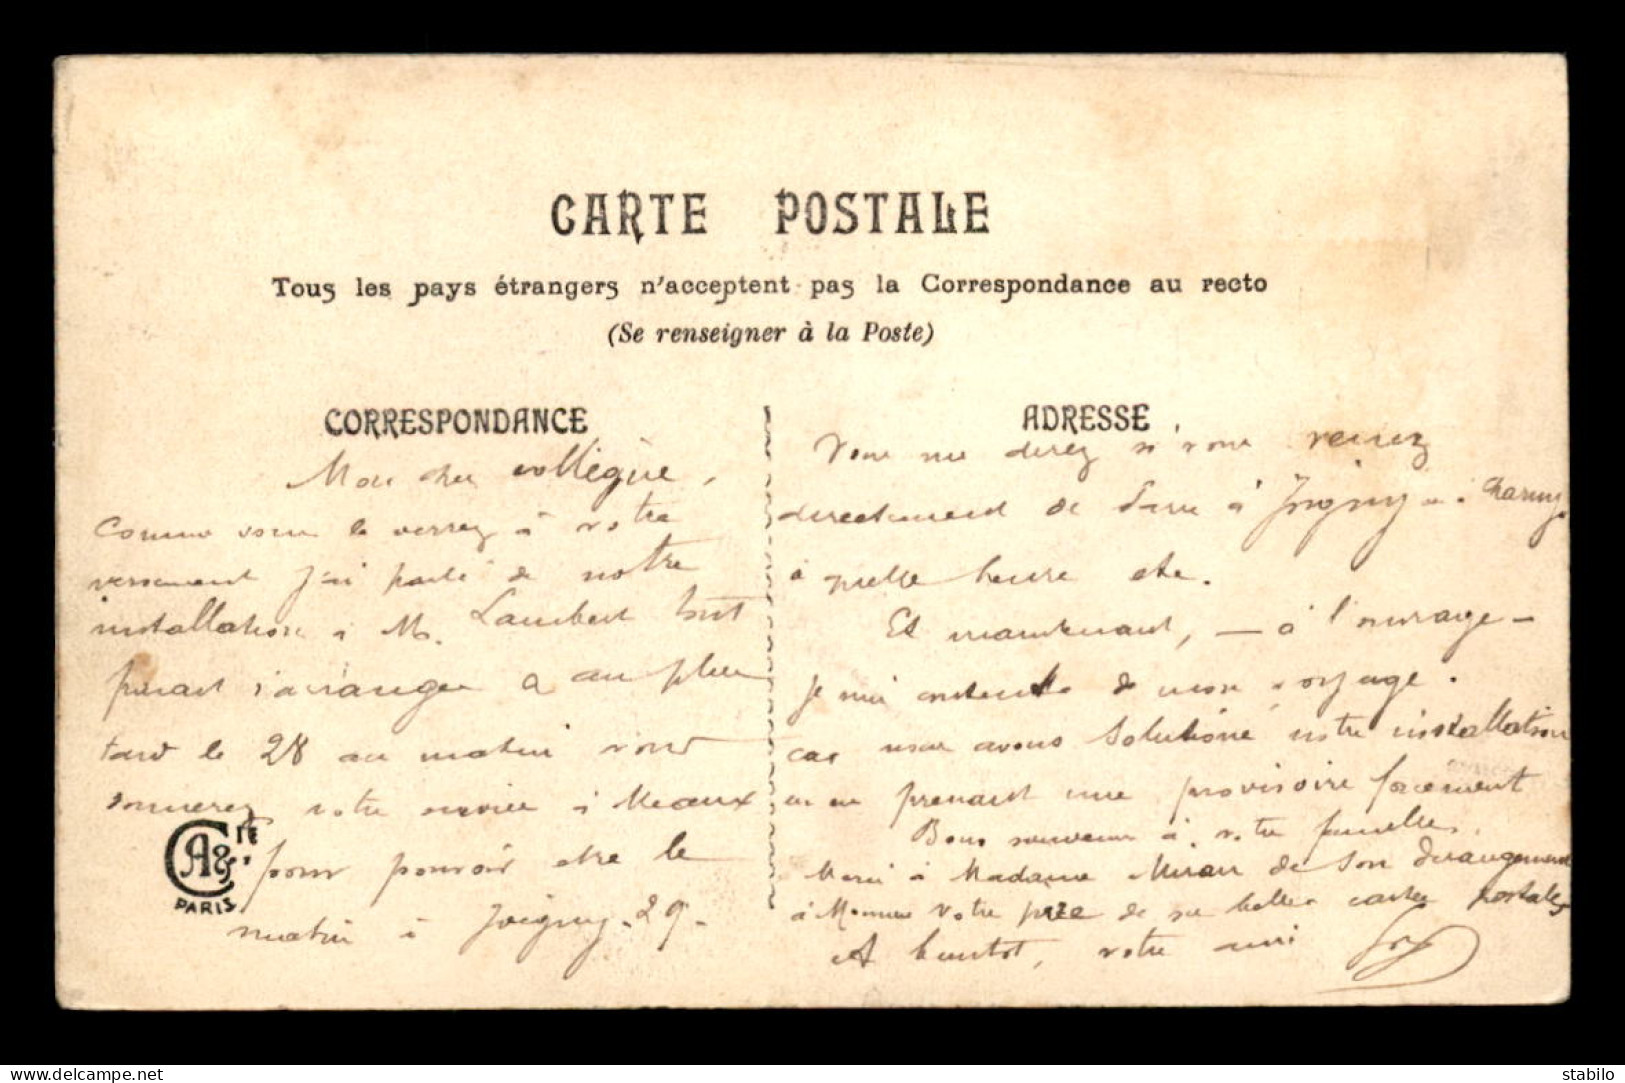 CARTE POSTALE
Tous les pays étrangers n'acceptent pas la Correspondance au recto
(Se renseigner à la Poste)
CORRESPONDANCE
Mon cher collègue,
Comme vous le verrez à votre
versement j'ai parlé de notre
installation à M. Lambert
s'arranger a au plus
tard le 28 au matin vous
votre service à Meaux
pour pouvoir être le
matin à Joigny. 29.
A & Cie
PARIS
ADRESSE
Vous me direz si vous venez
directement de à Joigny ou à Charny
à quelle heure etc.
Et maintenant, — à l'ouvrage —
je suis de mon voyage.
car nous avons solutionné notre installation
en en prenant une provisoire forcément
Bons souvenirs à votre famille.
Merci à Madame de son dérangement
à Monsieur votre père de ses belles cartes postales
A bientôt, votre ami
www.delcampe.net
stabilo